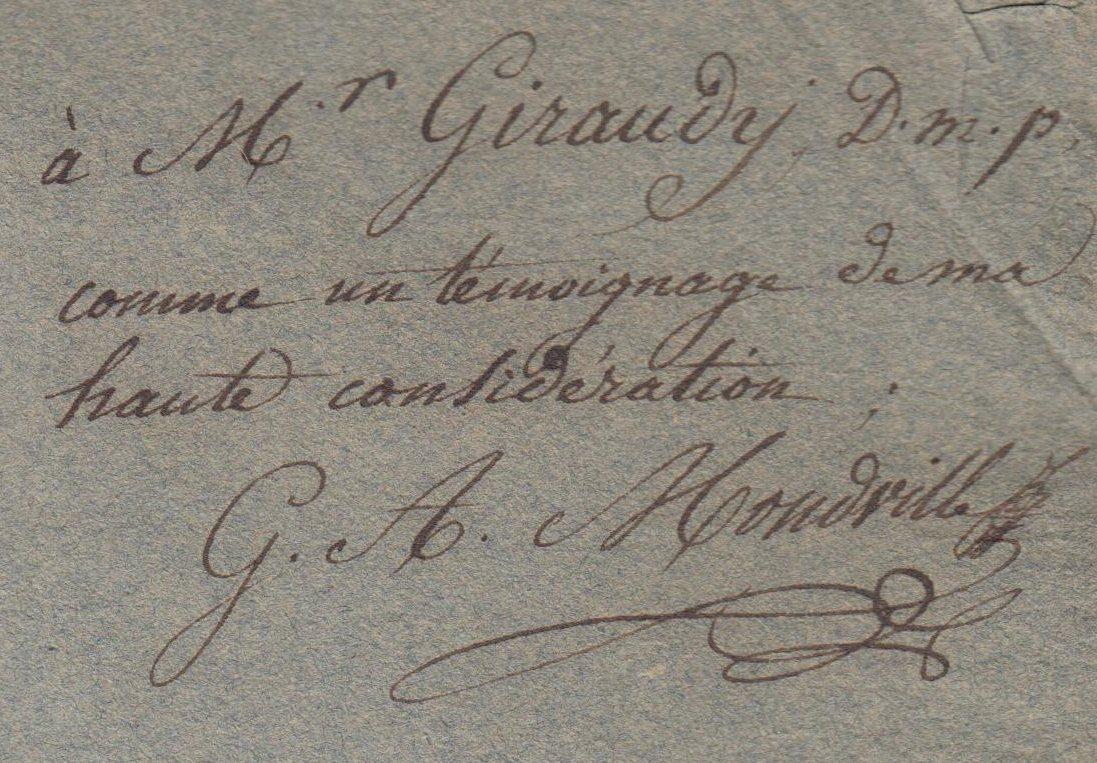 à M.r Giraudy, D.m.p.
comme un témoignage de ma
haute considération ;
G. A. Mondville